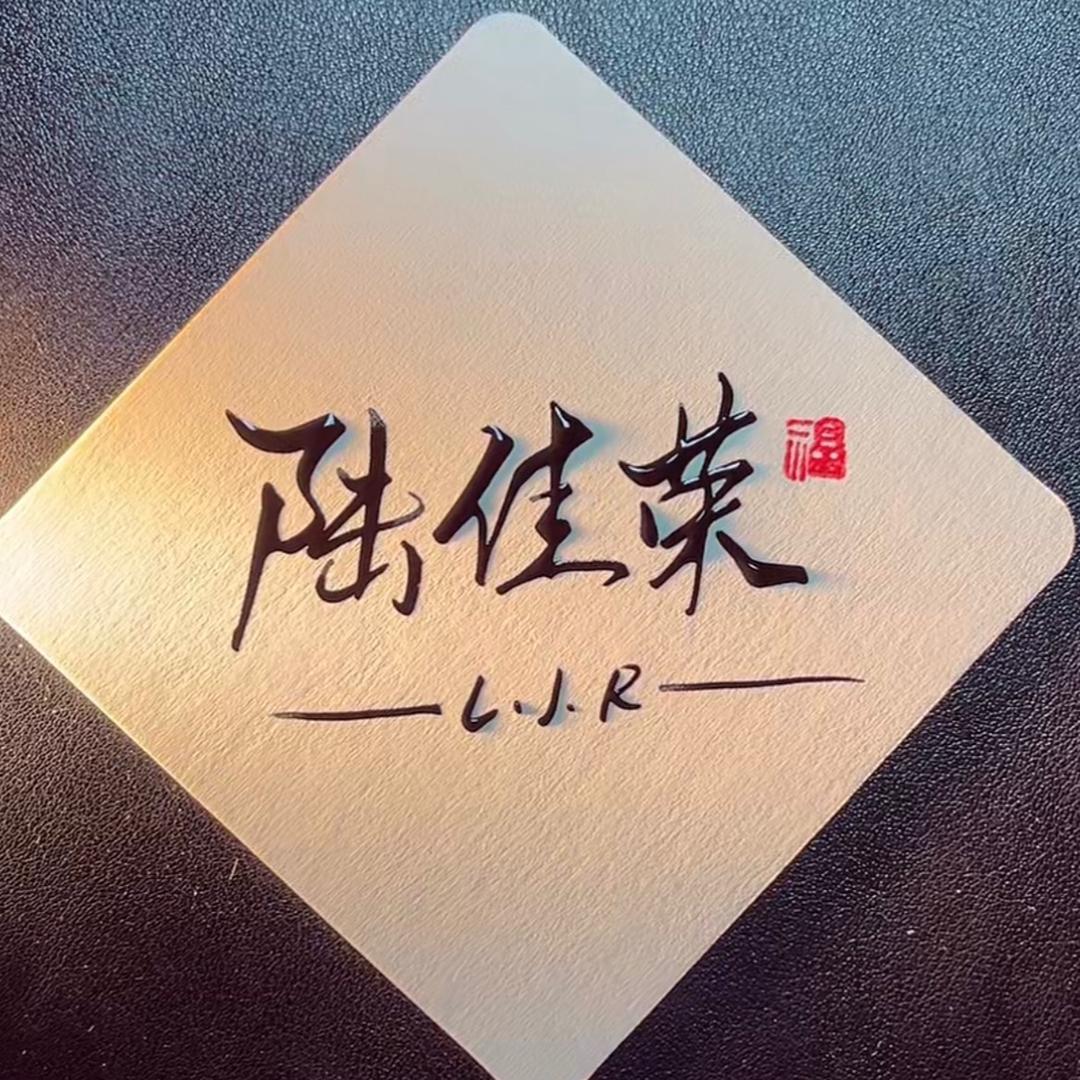 陆佳荣 福
L.J.R